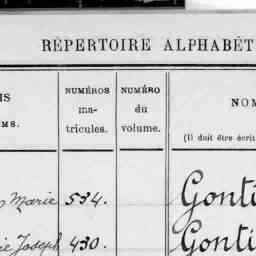 RÉPERTOIRE ALPHABÉT
IS
OMS.
NUMÉROS
ma-
tricules.
NUMÉRO
du
volume.
NOM
(Il doit être écrit
Marie 534.
Gonti
Joseph 430.
Gonti